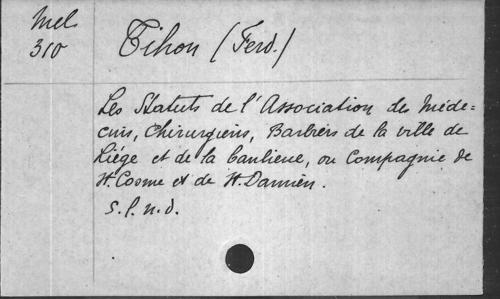 Mel
310
Tihon (Ferd.)
Les Statuts de l'Association des Méde=
cins, Chirurgiens, Barbiers de la ville de
Liége et de la banlieue, ou Compagnie de
St. Cosme et de St. Damien.
S. l. n. d.